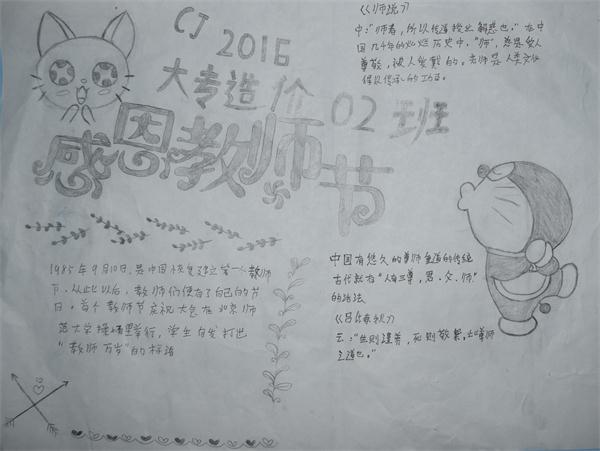 CJ 2016
大专造价 02 班
感恩教师节
《师说》
中:"师者,所以传道授业解惑也。"在中
国几千年的灿烂历史中,"师",总是受人
尊敬,被人爱戴的。老师是人类文化
得以传承的功臣。
1985年9月10日,是中国恢复建立第一个教师
节,从此以后,教师们便有了自己的节
日,首个教师节庆祝大会在北京师
范大学隆重举行,学生自发打出
"教师万岁"的标语
中国有悠久的尊师重道的传统
古代就有"人有三尊,君、父、师"
的说法
《吕氏春秋》
云:"生则谨养,死则敬祭,此尊师
之道也。"